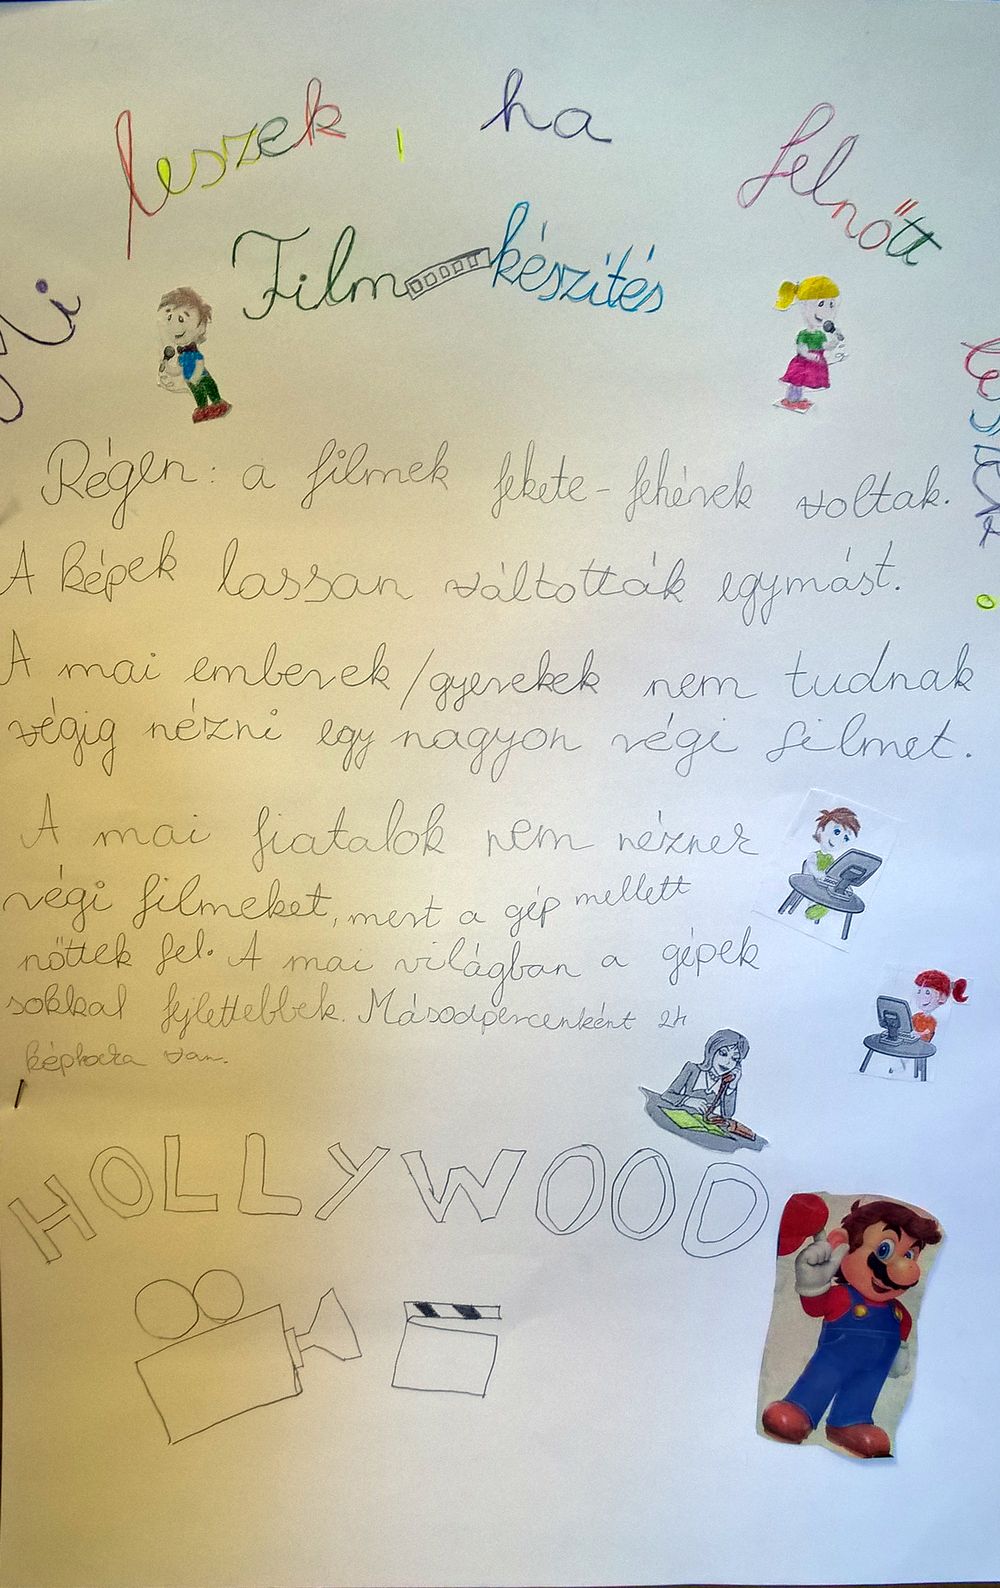 Mi leszek, ha felnőtt leszek?
Filmkészítés
Régen: a filmek fekete-fehérek voltak.
A képek lassan váltották egymást.
A mai emberek/gyerekek nem tudnak
végig nézni egy nagyon régi filmet.
A mai fiatalok nem néznek
régi filmeket, mert a gép mellett
nőttek fel. A mai világban a gépek
sokkal fejlettebbek. Másodpercenként 24
képkocka van.
HOLLYWOOD